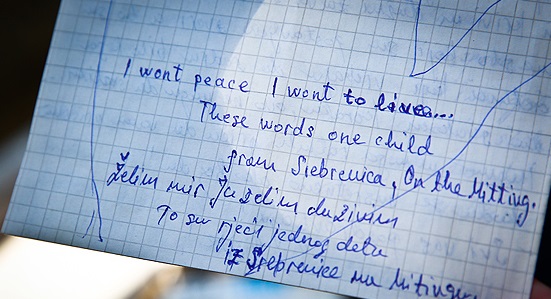 I wont peace I wont to live...
These words one child
from Srebrenica, On the Mitting.
Želim mir Ja želim da živim
To su rječi jednog deta
iz Srebrenice na Mitingu